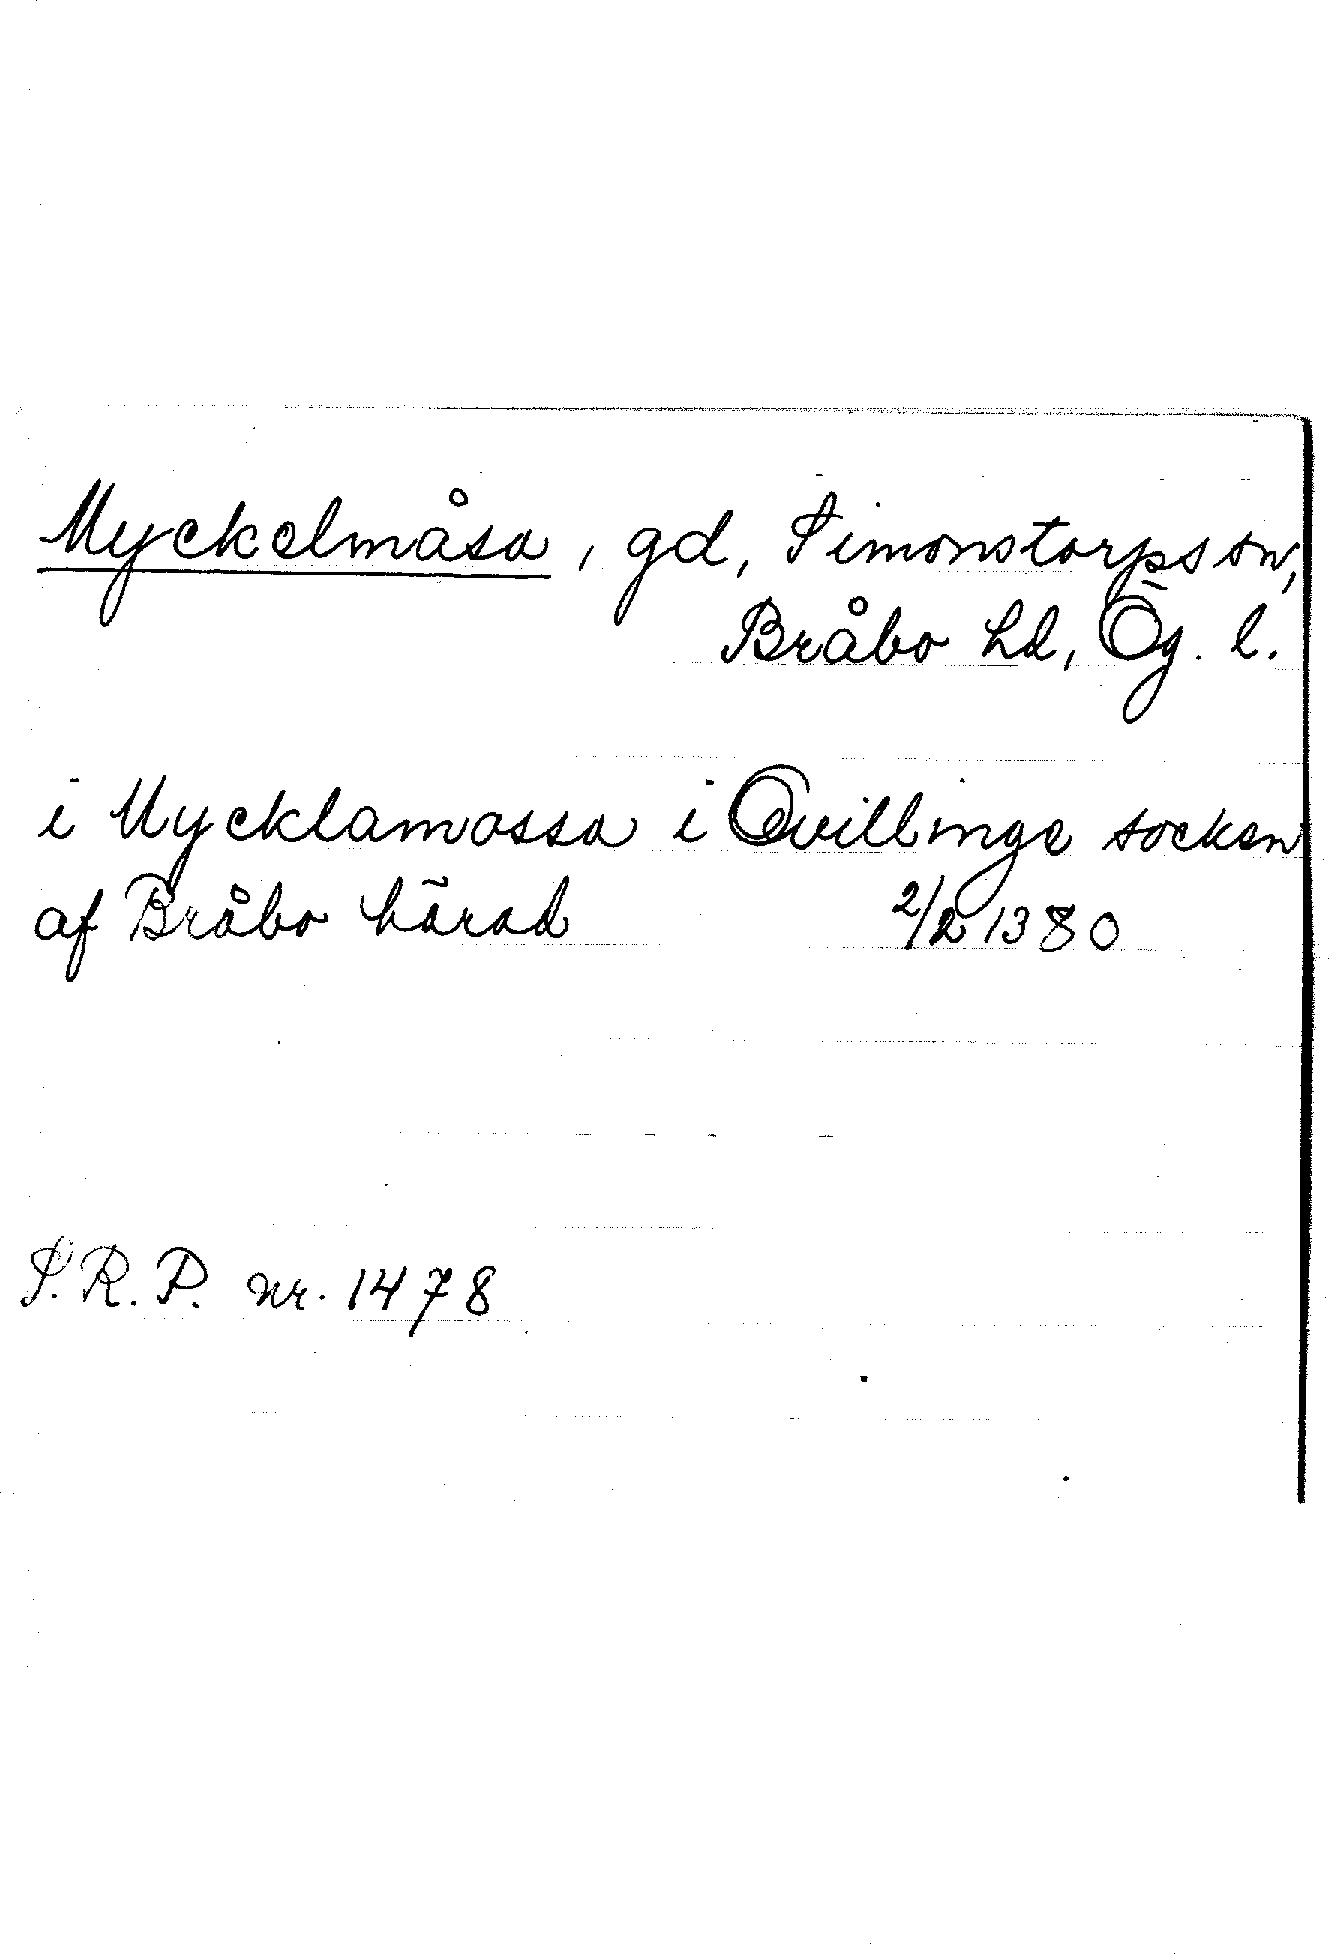 Myckelmåsa, gd, Simonstorps sn,
Bråbo hd, Ög. l.
i Mycklamossa i Qvillinge socken
af Bråbo härad 2/2 1380
S.R.P. nr. 1478